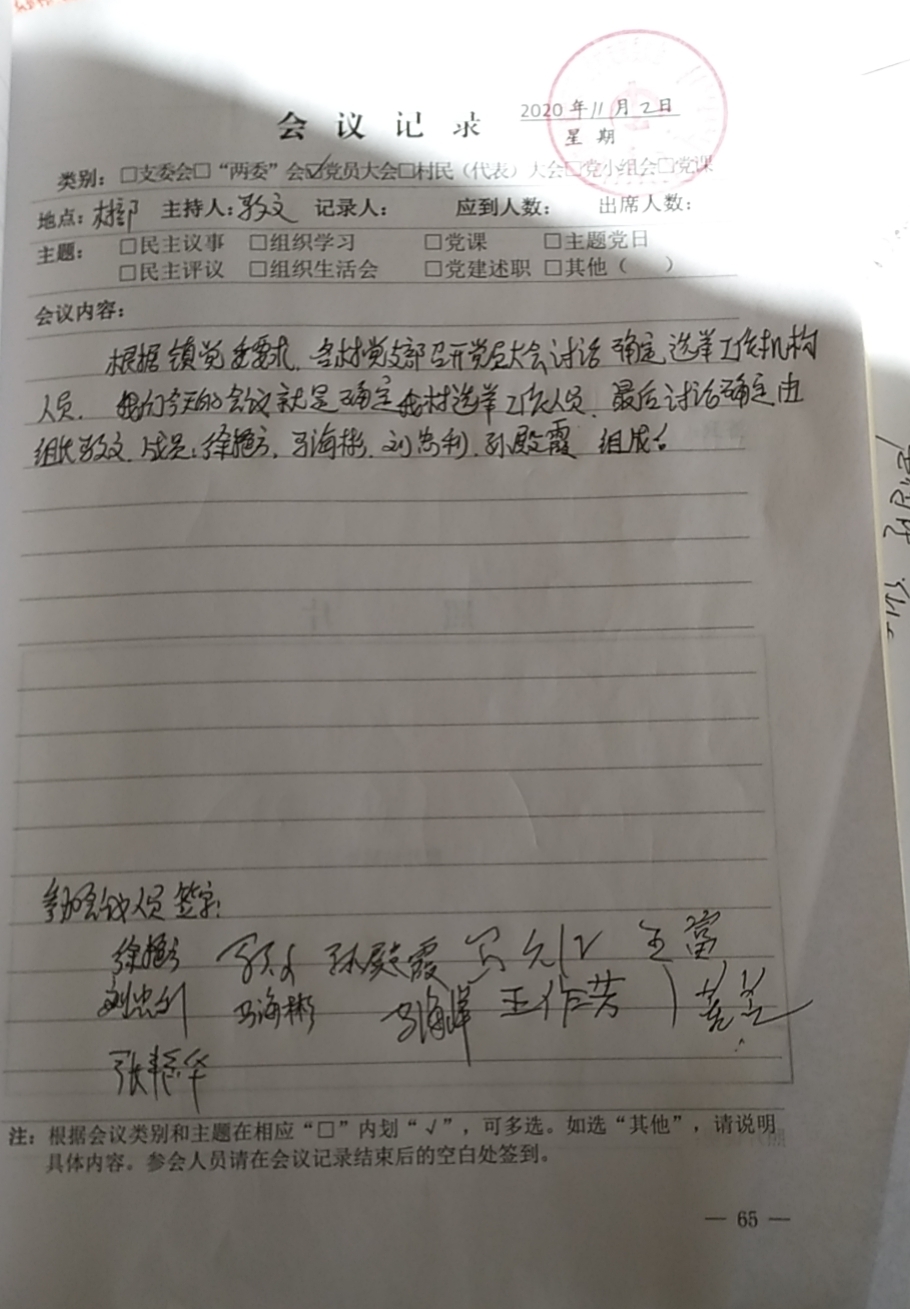 会议记录
2020年11月2日
星期
类别：□支委会□“两委”会☑党员大会□村民（代表）大会□党小组会□党课
地点：村部 主持人： 记录人： 应到人数： 出席人数：
主题： □民主议事 □组织学习 □党课 □主题党日
□民主评议 □组织生活会 □党建述职 □其他（ ）
会议内容：
根据镇党委要求，各村党支部召开党员大会讨论确定选举工作机构
人员。我们今天的会议就是确定我村选举工作人员。最后讨论确定由
组长 成员：徐 、马海彬、刘忠利、孙殿霞 组成。
参加会议人员签字：
孙殿霞 王富
刘忠利 马海彬 马海峰 王作芳
张 华
注：根据会议类别和主题在相应“□”内划“√”，可多选。如选“其他”，请说明
具体内容。参会人员请在会议记录结束后的空白处签到。
— 65 —